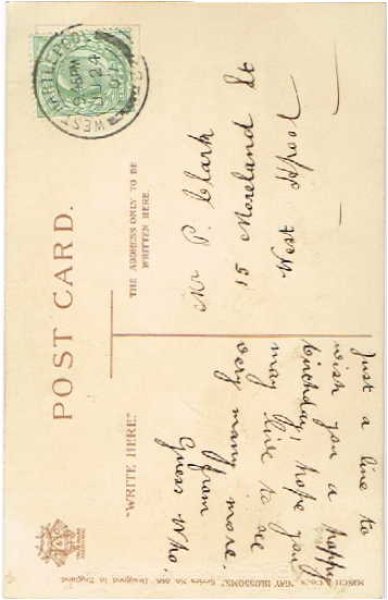 POST CARD.
"WRITE HERE"
THE ADDRESS ONLY TO BE
WRITTEN HERE.
WEST HARTLEPOOL
9.45PM
24
Just a line to
wish you a happy
birthday, hope you
may live to see
very many more.
from
Guess Who.
Mr P. Clark
15 Moreland St
West H'pool
"GAY BLOSSOMS." Series No. Designed in England.